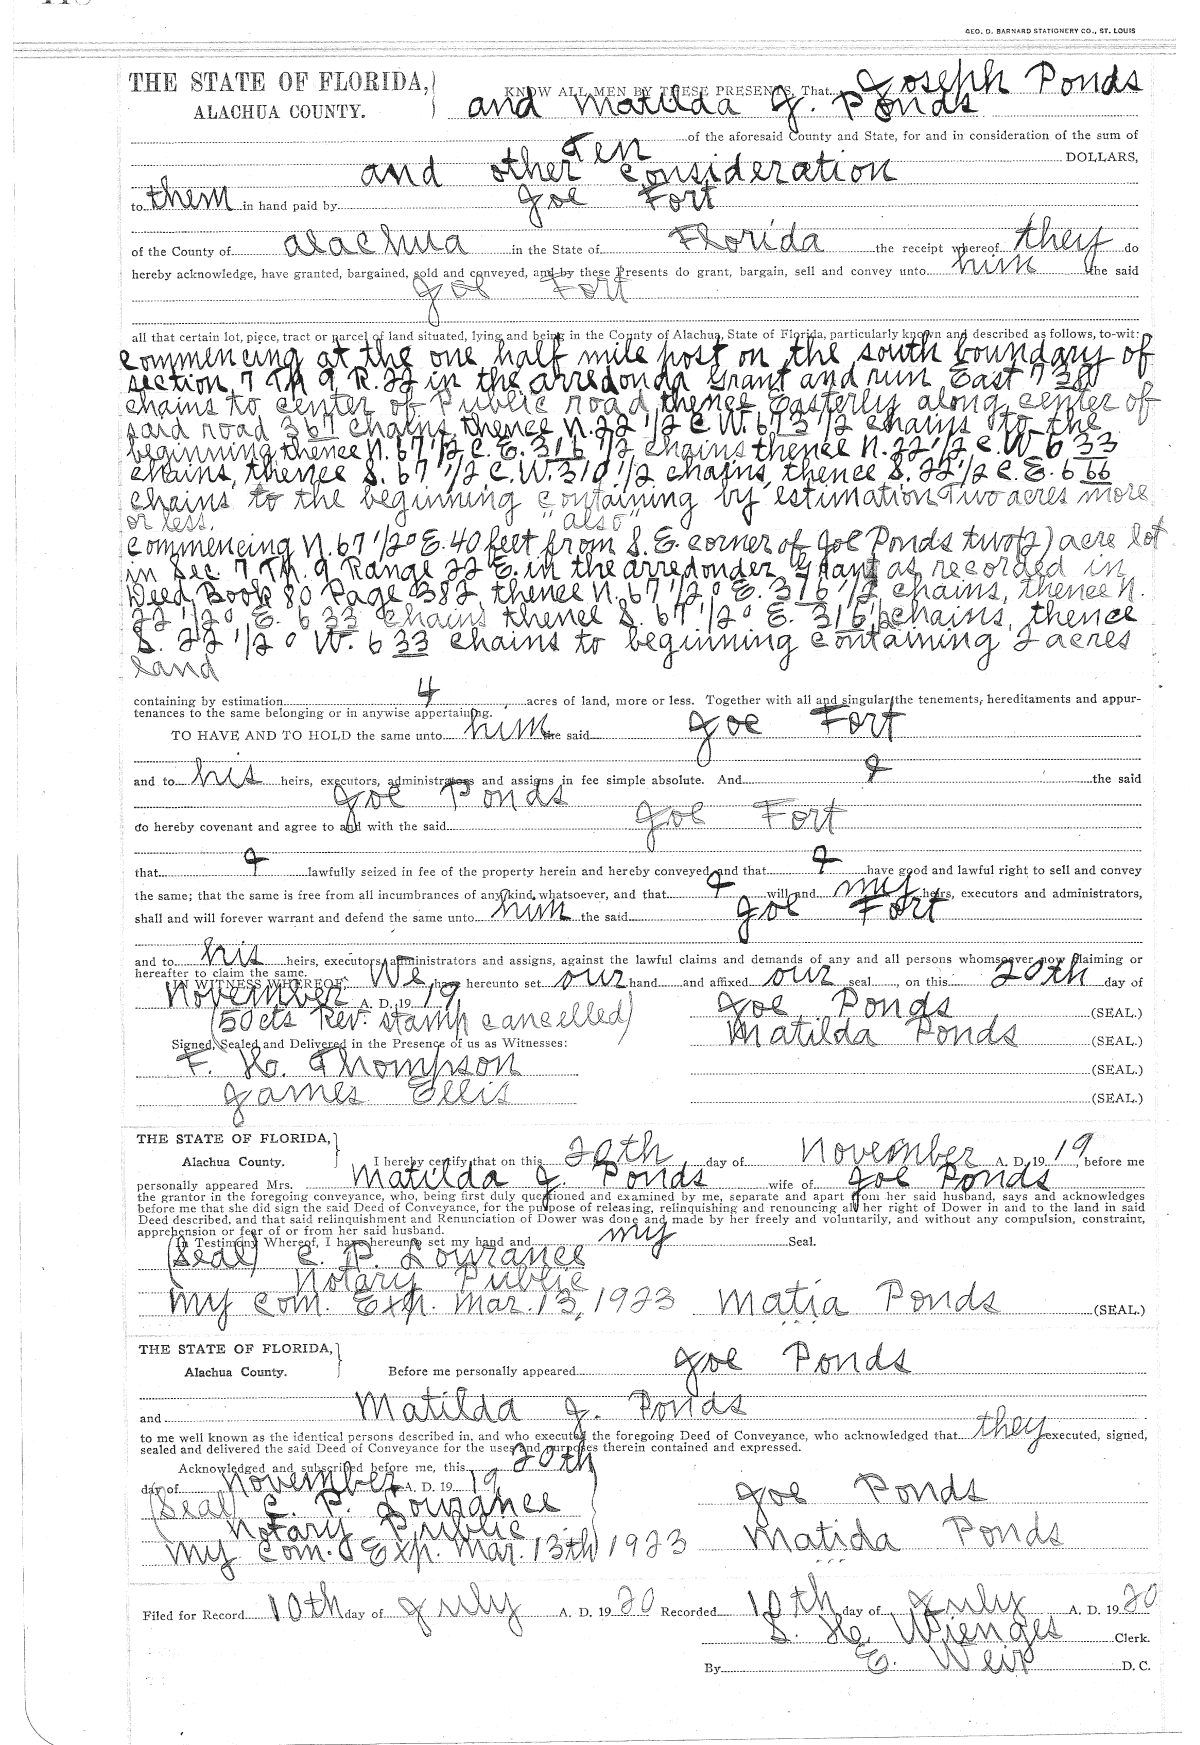 GEO. D. BARNARD STATIONERY CO., ST. LOUIS
THE STATE OF FLORIDA,
ALACHUA COUNTY.
KNOW ALL MEN BY THESE PRESENTS, That Joseph Ponds
and Matilda J. Ponds
of the aforesaid County and State, for and in consideration of the sum of
Ten DOLLARS,
and other consideration
to them in hand paid by Joe Fort
of the County of Alachua in the State of Florida the receipt whereof they do
hereby acknowledge, have granted, bargained, sold and conveyed, and by these Presents do grant, bargain, sell and convey unto him the said
Joe Fort
all that certain lot, piece, tract or parcel of land situated, lying and being in the County of Alachua, State of Florida, particularly known and described as follows, to-wit:
Commencing at the one half mile post on the south boundary of
section 7 TM 9 R. 22 in the arredonda Grant and run East 7 380
chains to center of Public road, thence Easterly along center of
said road 367 chains, thence N. 22 1/2 E W. 6.73 1/2 chains to the
beginning thence N. 67 1/2 E. E. 316 1/2 chains thence N. 22 1/2 E. W 6 33
chains, thence S. 67 1/2 E. W. 310 1/2 chains, thence S. 22 1/2 E. E. 6 66
chains to the beginning containing by estimation Two acres more
or less. "also"
Commencing N. 67 1/2° E. 40 feet from S. E. corner of Joe Ponds two (2) acre lot
in Sec. 7 TM. 9 Range 22 E. in the arredonder as recorded in
Deed Book 80 Page 382, thence N. 67 1/2° E. 316 1/2 chains, thence N.
22 1/2° E. 6 33 chains thence S. 67 1/2° E. 316 1/2 chains, thence
S. 22 1/2° W. 6 33 chains to beginning containing 2 acres
land
containing by estimation 4 acres of land, more or less. Together with all and singular the tenements, hereditaments and appur-
tenances to the same belonging or in anywise appertaining.
TO HAVE AND TO HOLD the same unto him the said Joe Fort
and to his heirs, executors, administrators and assigns in fee simple absolute. And I the said
Joe Ponds
do hereby covenant and agree to and with the said Joe Fort
that I lawfully seized in fee of the property herein and hereby conveyed, and that I have good and lawful right to sell and convey
the same; that the same is free from all incumbrances of any kind whatsoever, and that I will and my heirs, executors and administrators,
shall and will forever warrant and defend the same unto him the said Joe Fort
and to his heirs, executors, administrators and assigns, against the lawful claims and demands of any and all persons whomsoever now claiming or
hereafter to claim the same.
IN WITNESS WHEREOF, We have hereunto set our hand and affixed our seal, on this 20th day of
November A. D. 19 19. Joe Ponds (SEAL.)
(50cts Rev. stamp cancelled) Matilda Ponds (SEAL.)
Signed, Sealed and Delivered in the Presence of us as Witnesses:
F. H. Thompson (SEAL.)
James Ellis (SEAL.)
THE STATE OF FLORIDA,
Alachua County.
I hereby certify that on this 20th day of November A. D. 19 19, before me
personally appeared Mrs. Matilda J. Ponds wife of Joe Ponds
the grantor in the foregoing conveyance, who, being first duly questioned and examined by me, separate and apart from her said husband, says and acknowledges
before me that she did sign the said Deed of Conveyance, for the purpose of releasing, relinquishing and renouncing all her right of Dower in and to the land in said
Deed described, and that said relinquishment and Renunciation of Dower was done and made by her freely and voluntarily, and without any compulsion, constraint,
apprehension or fear of or from her said husband.
In Testimony Whereof, I have hereunto set my hand and my Seal.
(Seal) C. P. Lourance
Notary Public
My Com. Exp. Mar. 13, 1923 Matia Ponds (SEAL.)
THE STATE OF FLORIDA,
Alachua County.
Before me personally appeared Joe Ponds
and Matilda J. Ponds
to me well known as the identical persons described in, and who executed the foregoing Deed of Conveyance, who acknowledged that they executed, signed,
sealed and delivered the said Deed of Conveyance for the uses and purposes therein contained and expressed.
Acknowledged and subscribed before me, this 20th
day of November A. D. 19 19
(Seal) C. P. Lourance Joe Ponds
Notary Public
My Com. Exp. Mar. 13th 1923 Matida Ponds
Filed for Record 10th day of July A. D. 19 20 Recorded 10th day of July A. D. 19 20
S. H. Wienges Clerk.
By E. Weir D. C.